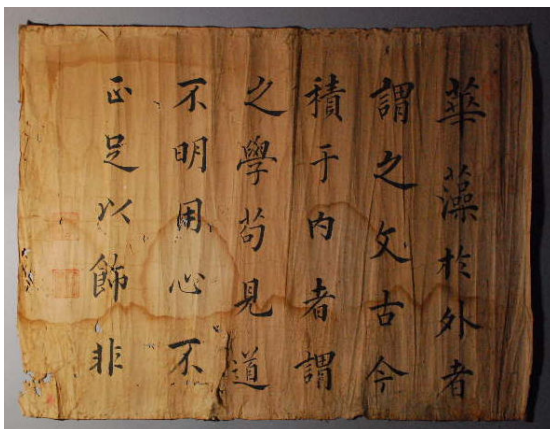 華藻於外者
謂之文古今
積于內者謂
之學苟見道
不明用心不
正足以飾非